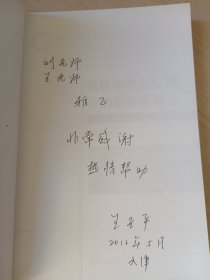 刘老师
王老师
雅正
非常感谢
热情帮助
2012年5月
天津